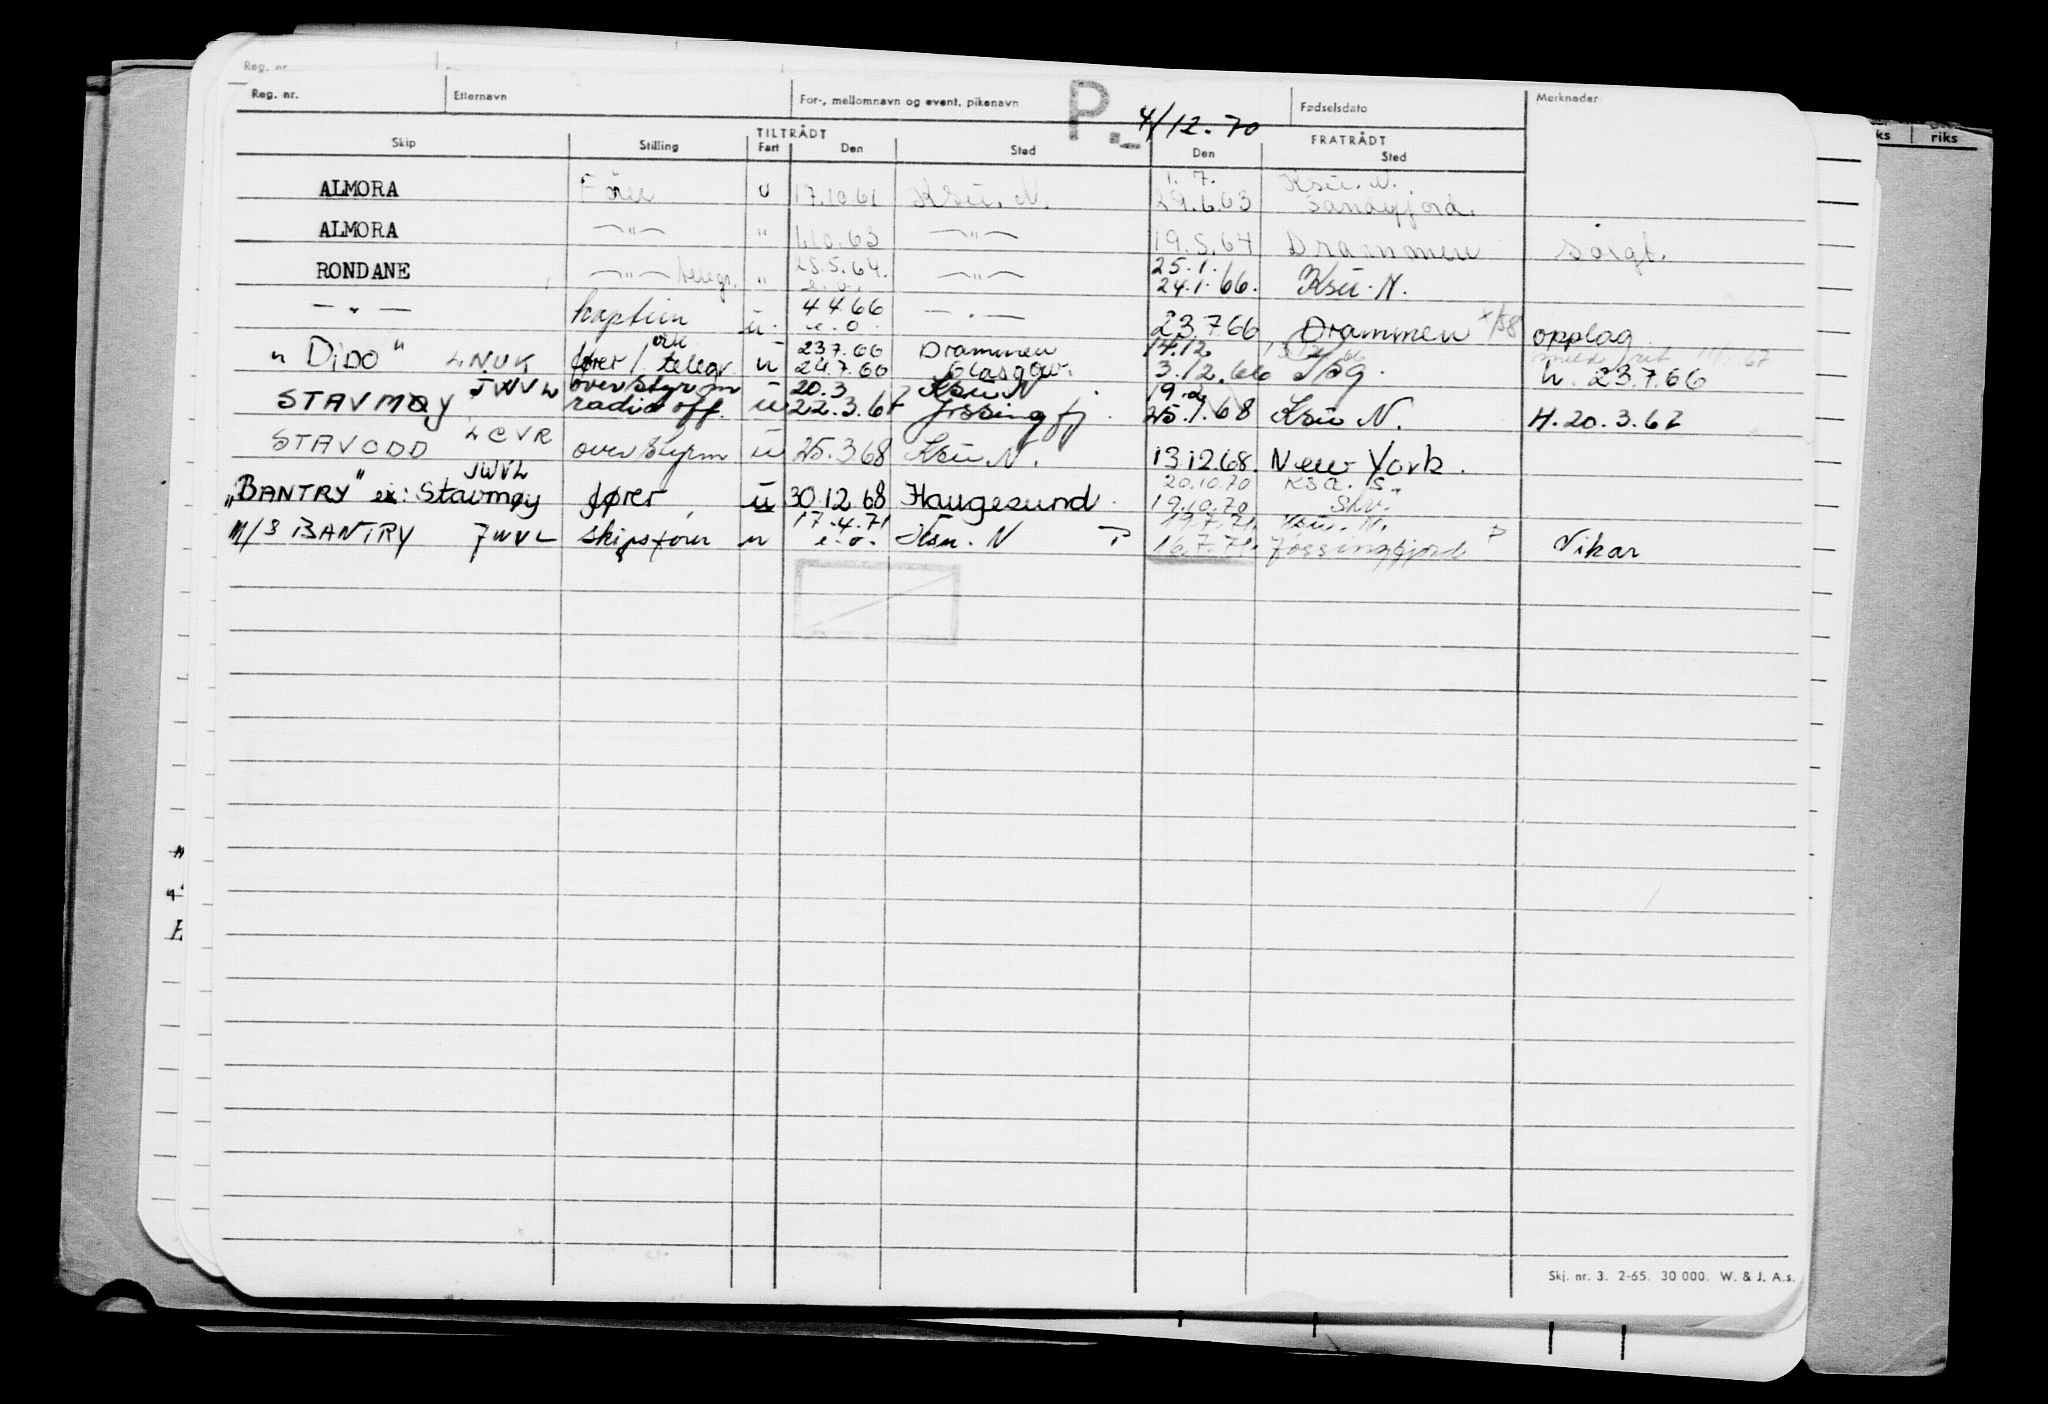 Reg. nr.
Reg. nr. Etternavn For-, mellomnavn og event. pikenavn P. 4/12.70 Fødselsdato Merknader
TILTRÅDT FRATRÅDT
Skip Stilling Fart Den Sted Den Sted
riks
1. 7. Ksu. N.
ALMORA Fører u 17.10.61 Ksu. N. 29.6.63 Sandefjord.
ALMORA —"— " 1.10.63 —"— 19.5.64 Drammen solgt.
25.5.64. 25.1.
RONDANE —"— telegr. " —"— 24.1.66. Ksu. N.
— " — kaptein u. 4.4.66 — " — 23.7.66 Drammen opplag
e.o.
23.7.66 Drammen 14.12
"DIDO" LNUK fører / telegr u 24.7.66 Glasgow. 3.12.66 h. 23.7.66
JWVL overstyrm u 20.3 Ksu N 19.2
STAVMØY radio off. u 22.3.67 Jøssingfj. 25.1.68 Ksu N. H. 20.3.67
STAVODD LCVR overstyrm u 25.3.68 Ksu N. 13.12.68. New York.
JWVL 20.10.70 Ksa. S.
"BANTRY" ex: Stavmøy fører u 30.12.68 Haugesund. 19.10.70
17.4.71 19.7.71. Ksu. N.
M/S BANTRY JWVL skipsfører u e.o. Ksu. N P 16.7.71. Jøssingfjord P Vikar
Skj. nr. 3. 2-65. 30 000. W. & J. A.s.